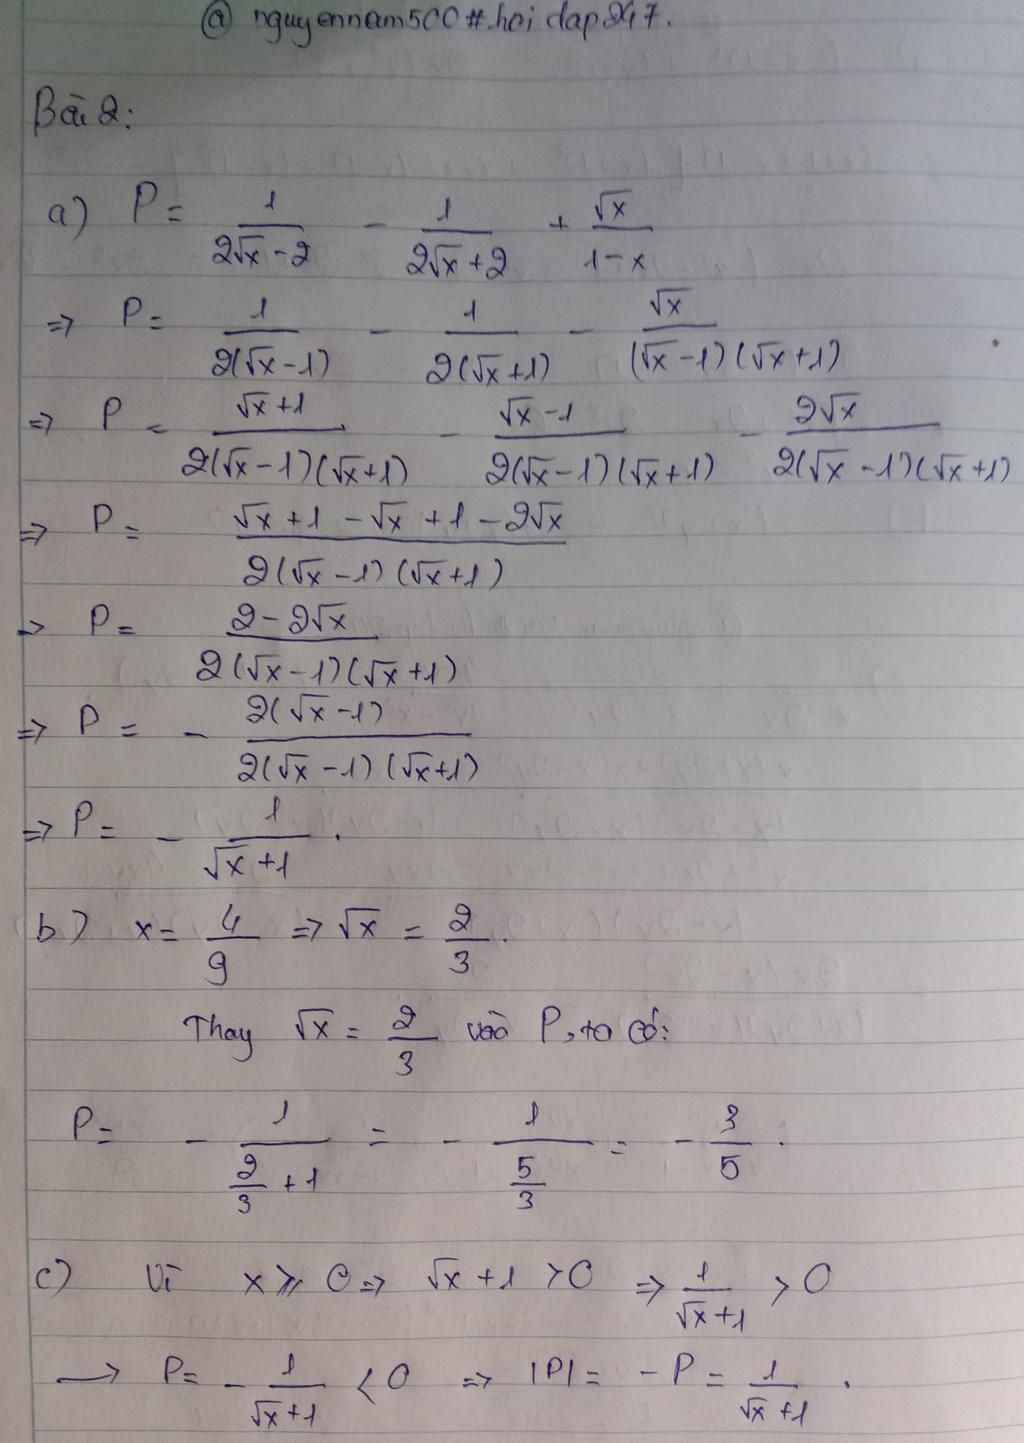 @ nguyennam500#hoidap247.
Bài 2:
a) P = 1/(2√x - 2) - 1/(2√x + 2) + √x/(1 - x)
=> P = 1/(2(√x - 1)) - 1/(2(√x + 1)) - √x/((√x - 1)(√x + 1))
=> P = (√x + 1)/(2(√x - 1)(√x + 1)) - (√x - 1)/(2(√x - 1)(√x + 1)) - 2√x/(2(√x - 1)(√x + 1))
=> P = (√x + 1 - √x + 1 - 2√x)/(2(√x - 1)(√x + 1))
=> P = (2 - 2√x)/(2(√x - 1)(√x + 1))
=> P = - 2(√x - 1)/(2(√x - 1)(√x + 1))
=> P = - 1/(√x + 1).
b) x = 4/9 => √x = 2/3.
Thay √x = 2/3 vào P, ta có:
P = - 1/(2/3 + 1) = - 1/(5/3) = - 3/5.
c) Vì x ≥ 0 => √x + 1 > 0 => 1/(√x + 1) > 0
→ P = - 1/(√x + 1) < 0 => |P| = - P = 1/(√x + 1).